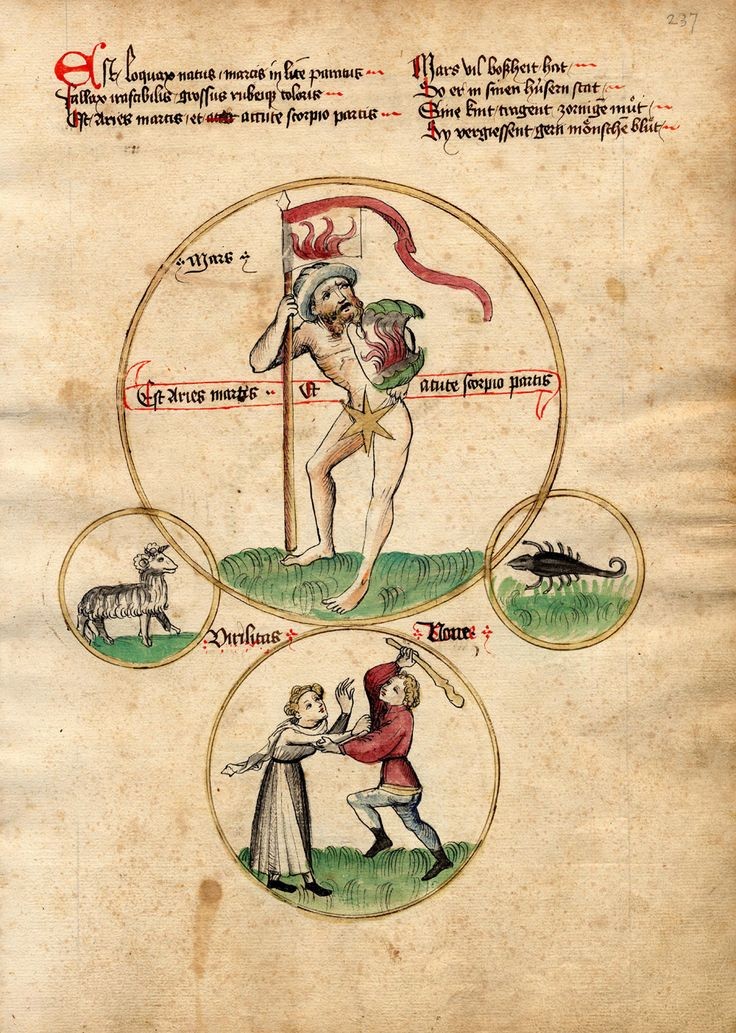 237
Est loquax natus martis in lite paratus
fallax irascibilis grossus rubeique coloris
Est Aries martis et acute scorpio partis
Mars vil boßheit hat
So er in sinen hüsern stat
Sine kint tragent zornigen müt
Sy vergiessent gern mönschen blüt
Mars
Est Aries martis Et acute scorpio partis
Virilitas